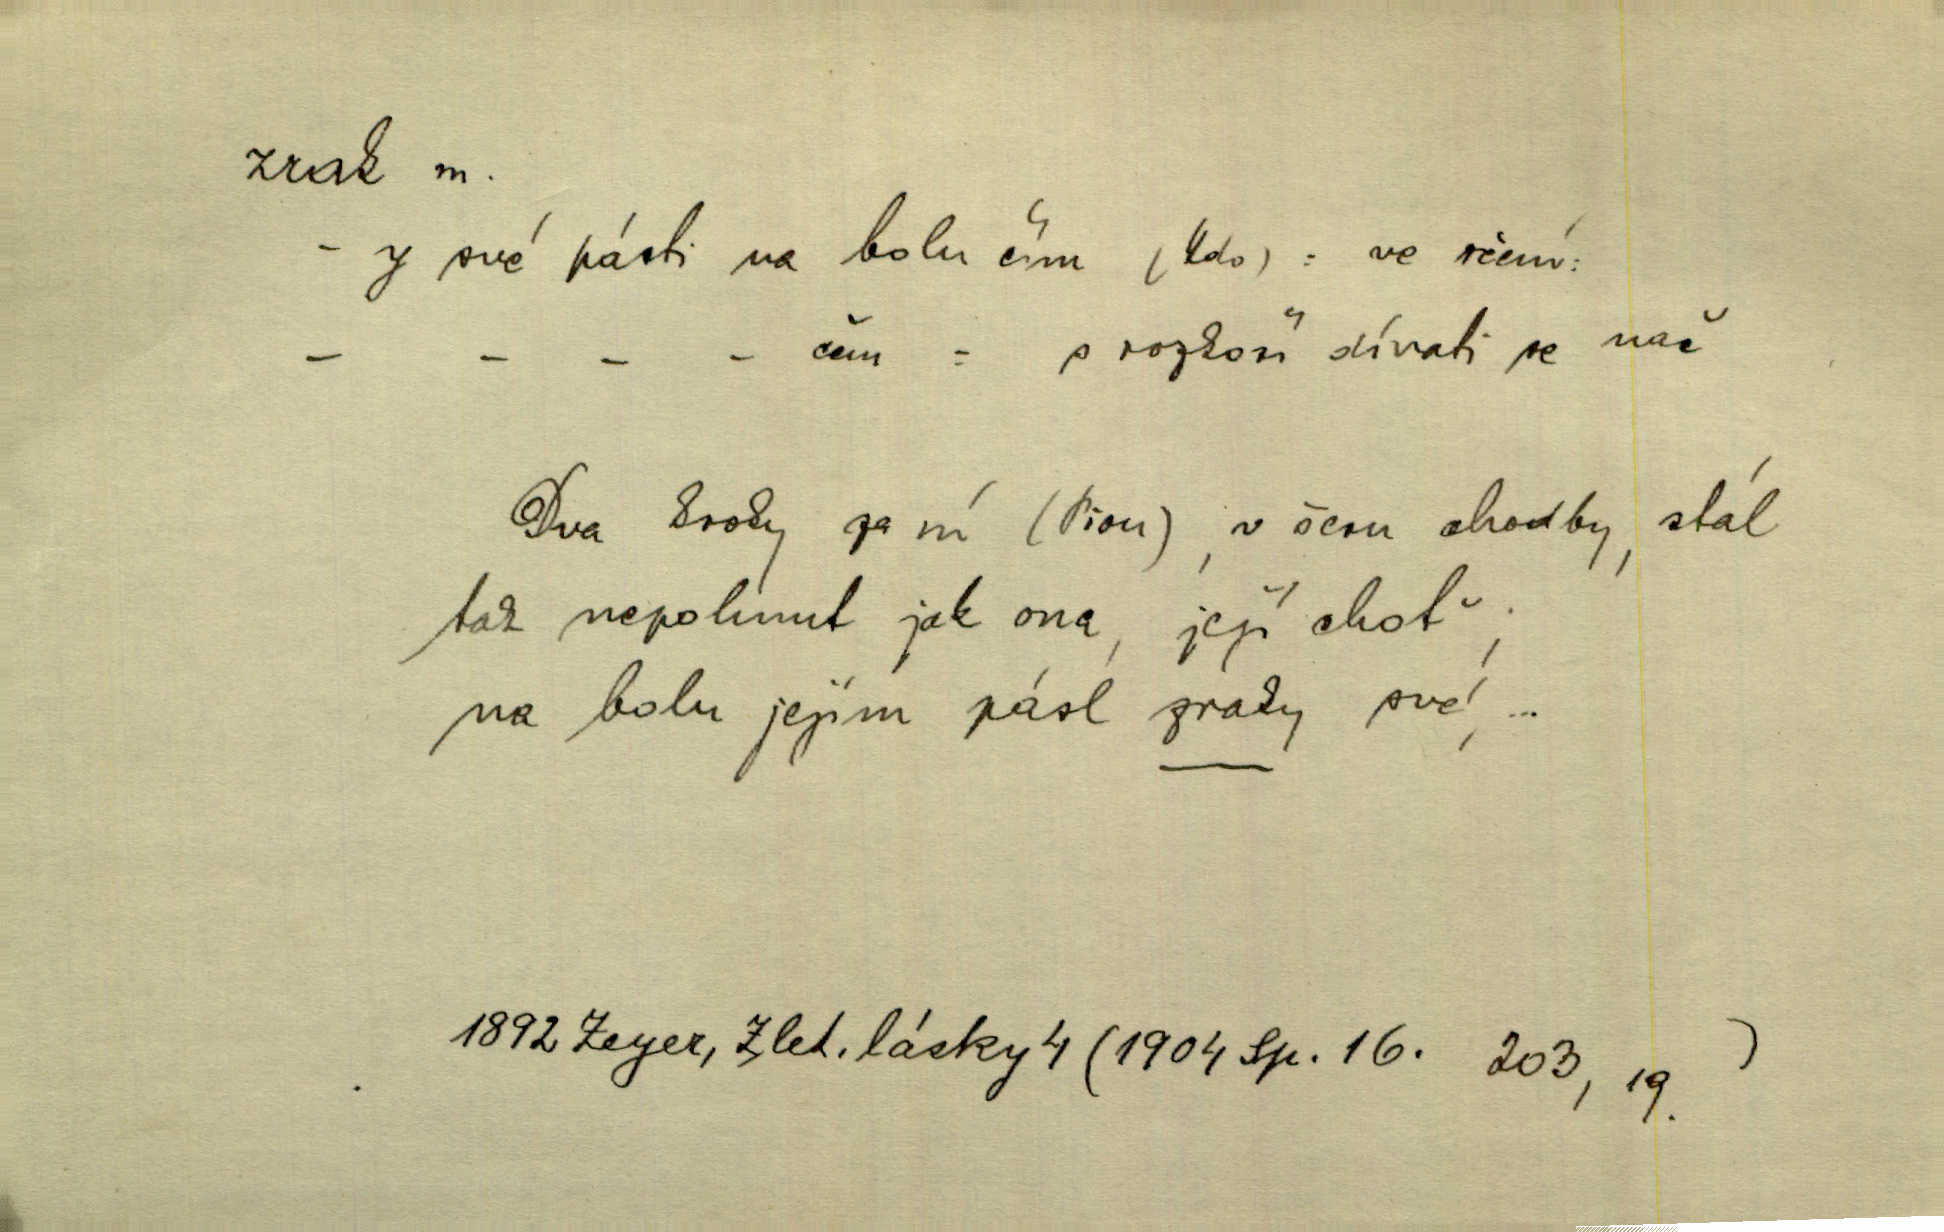 zrak m.
- y své pásti na bolu čím (kdo) = ve rčení:
— — — — čem = s rozkoší dívati se nač
Dva kroky za ní (Piou), v šeru chodby, stál
tak nepohnut jak ona, její choť;
na bolu jejím pásl zraky své, ...
1892 Zeyer, Z let. lásky 4 (1904 Sp. 16. 203, 19.)